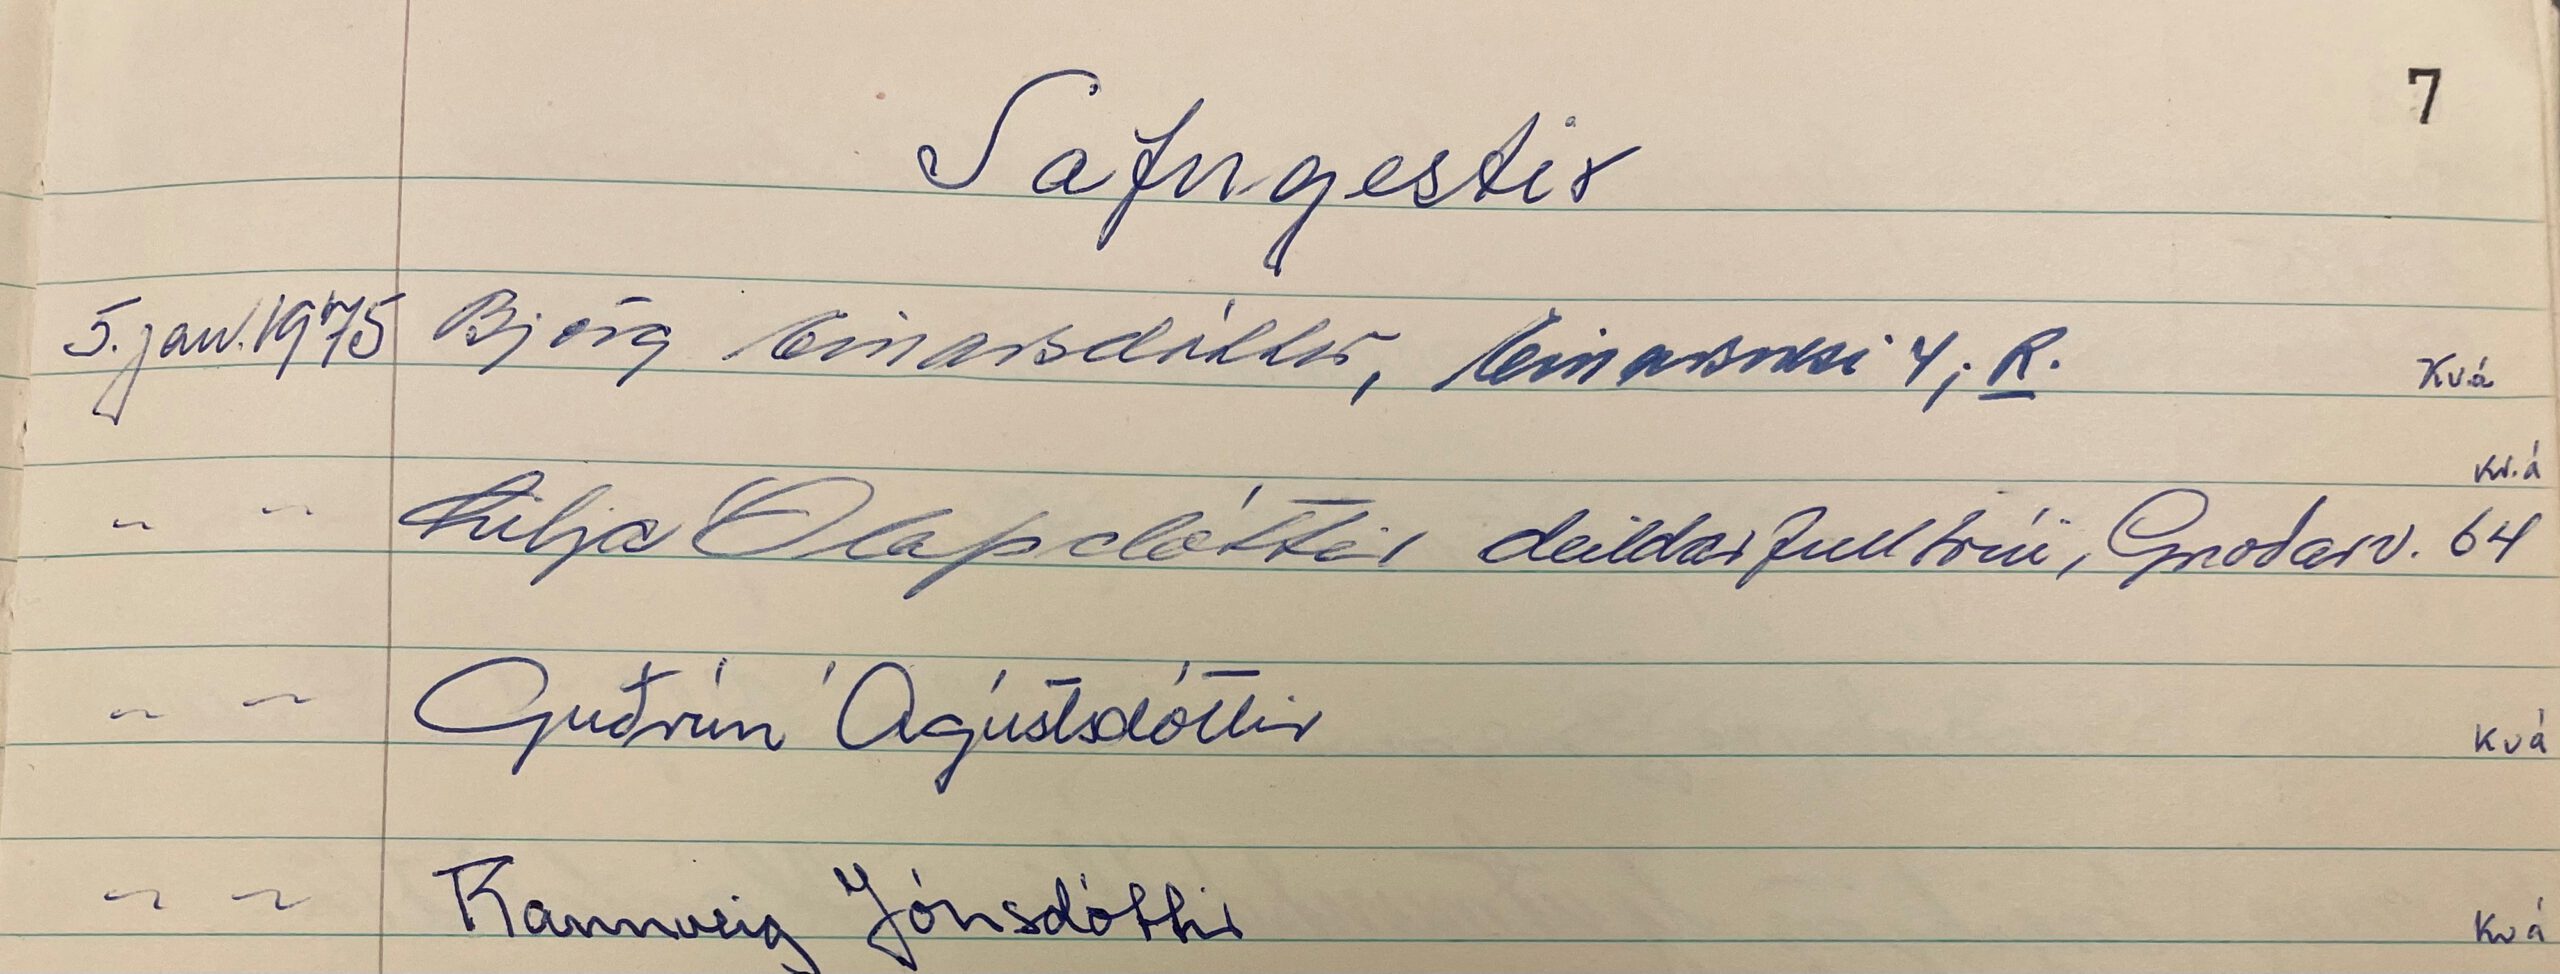 7
Safngestir
5. jan. 1975 Björg Einarsdóttir, Einarsnesi 4, R. Kvá
Kv.á
〃 〃 Lilja Ólafsdóttir deildarfulltrúi, Gnoðarv. 64
〃 〃 Guðrún Ágústsdóttir Kvá
〃 〃 Rannveig Jónsdóttir Kvá